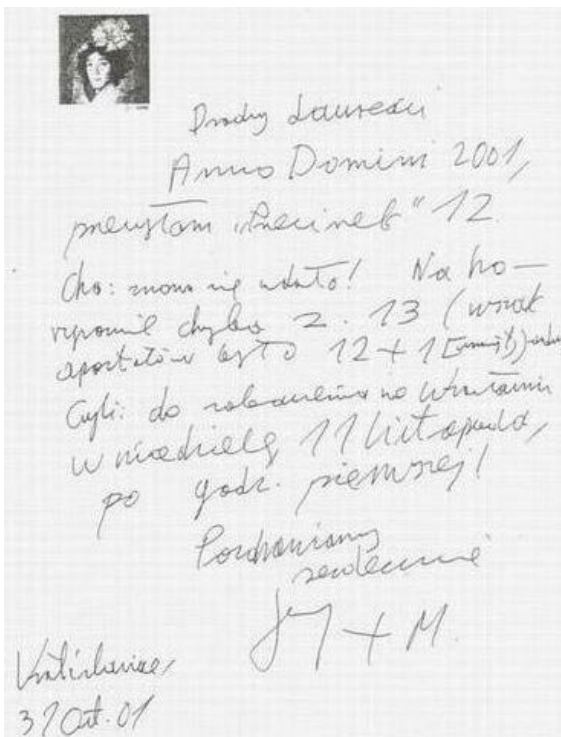 Drodzy Laureaci
Anno Domini 2001,
przesyłam „Przecinek" 12.
Oho: znowu się udało! Na ho-
ryzoncie chyba z. 13 (wszak
apostołów było 12 + 1
Czyli: do zobaczenia na
w niedzielę 11 listopada,
po godz. pierwszej!
Pozdrawiamy
serdecznie
+ M.
Vratislaviae,
31 Oct. 01